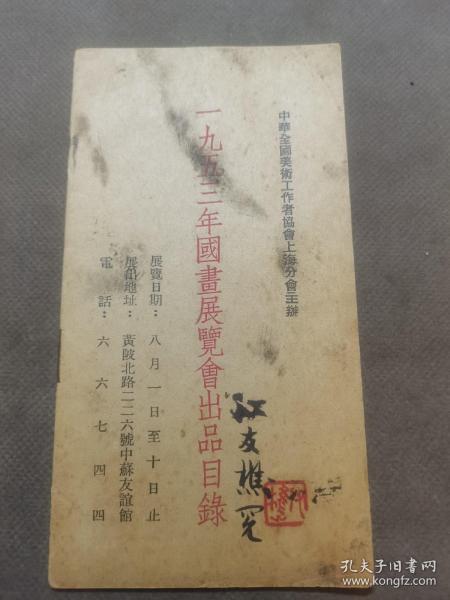 中華全國美術工作者協會上海分會主辦
一九五三年國畫展覽會出品目錄
展覽日期：八月一日至十日止
展覽地址：黃陂北路二二六號中蘇友誼館
電話：六六七四四
江友樵
孔夫子旧书网
www.kongfz.com